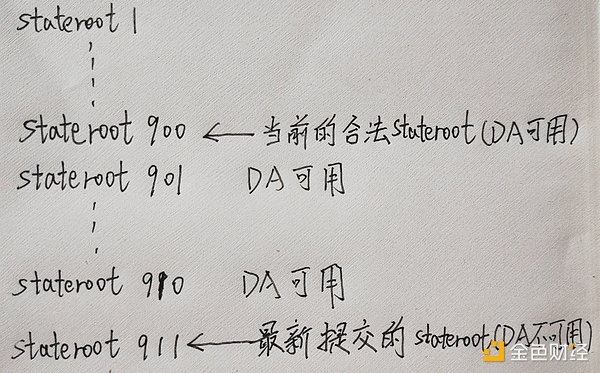 stateroot 1
stateroot 900 ← 当前的合法stateroot(DA可用)
stateroot 901 DA可用
stateroot 910 DA可用
stateroot 911 ← 最新提交的stateroot(DA不可用)
金色财经